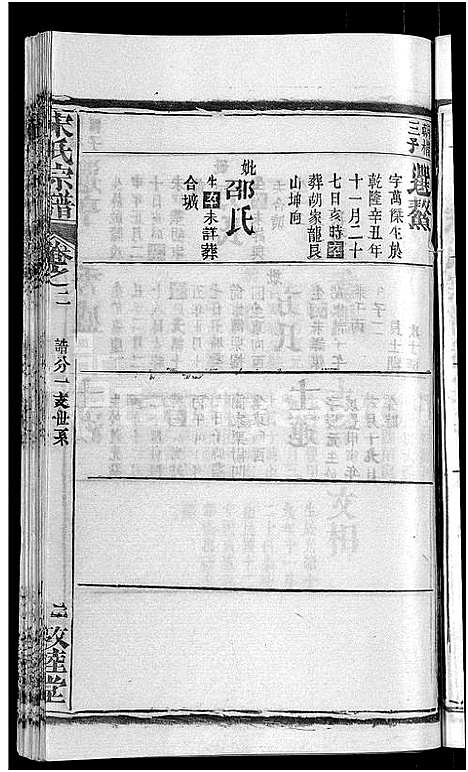 三子
字萬傑生於
乾隆辛丑年
十一月二十
七日亥時卒
葬胡家龍艮
山坤向
妣邵氏
生卒未詳葬
合城
宋氏宗譜
卷之二
誥分一支世系
敦睦堂